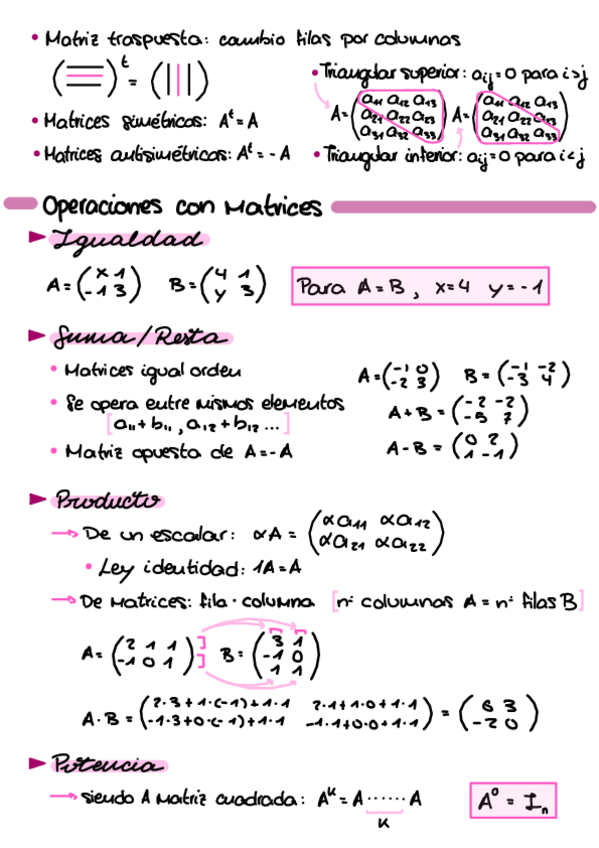 • Matriz traspuesta: cambio filas por columnas
( ☰ )ᵗ = ( ||| )
• Triangular superior: aᵢⱼ=0 para i>j
A=(a₁₁ a₁₂ a₁₃ A=(a₁₁ a₁₂ a₁₃
a₂₁ a₂₂ a₂₃ a₂₁ a₂₂ a₂₃
a₃₁ a₃₂ a₃₃) a₃₁ a₃₂ a₃₃)
• Matrices simétricas: Aᵗ=A
• Matrices antisimétricas: Aᵗ=-A
• Triangular inferior: aᵢⱼ=0 para i<j
Operaciones con matrices
► Igualdad
A=(x 1 B=(4 1
-1 3) y 3)
Para A=B, x=4 y=-1
► Suma/Resta
• Matrices igual orden
• Se opera entre mismos elementos
[a₁₁+b₁₁, a₁₂+b₁₂...]
• Matriz opuesta de A=-A
A=(-1 0 B=(-1 -2
-2 3) -3 4)
A+B=(-2 -2
-5 7)
A-B=(0 2
1 -1)
► Producto
→ De un escalar: αA = (αa₁₁ αa₁₂
αa₂₁ αa₂₂)
• Ley identidad: 1A=A
→ De matrices: fila · columna [nº columnas A = nº filas B]
A=(2 1 1 B=(3 1
-1 0 1) -1 0
1 1)
A·B=(2·3+1·(-1)+1·1 2·1+1·0+1·1 = (6 3
-1·3+0·(-1)+1·1 -1·1+0·0+1·1) -2 0)
► Potencia
→ siendo A matriz cuadrada: Aᴷ=A······A
K
A⁰ = Iₙ